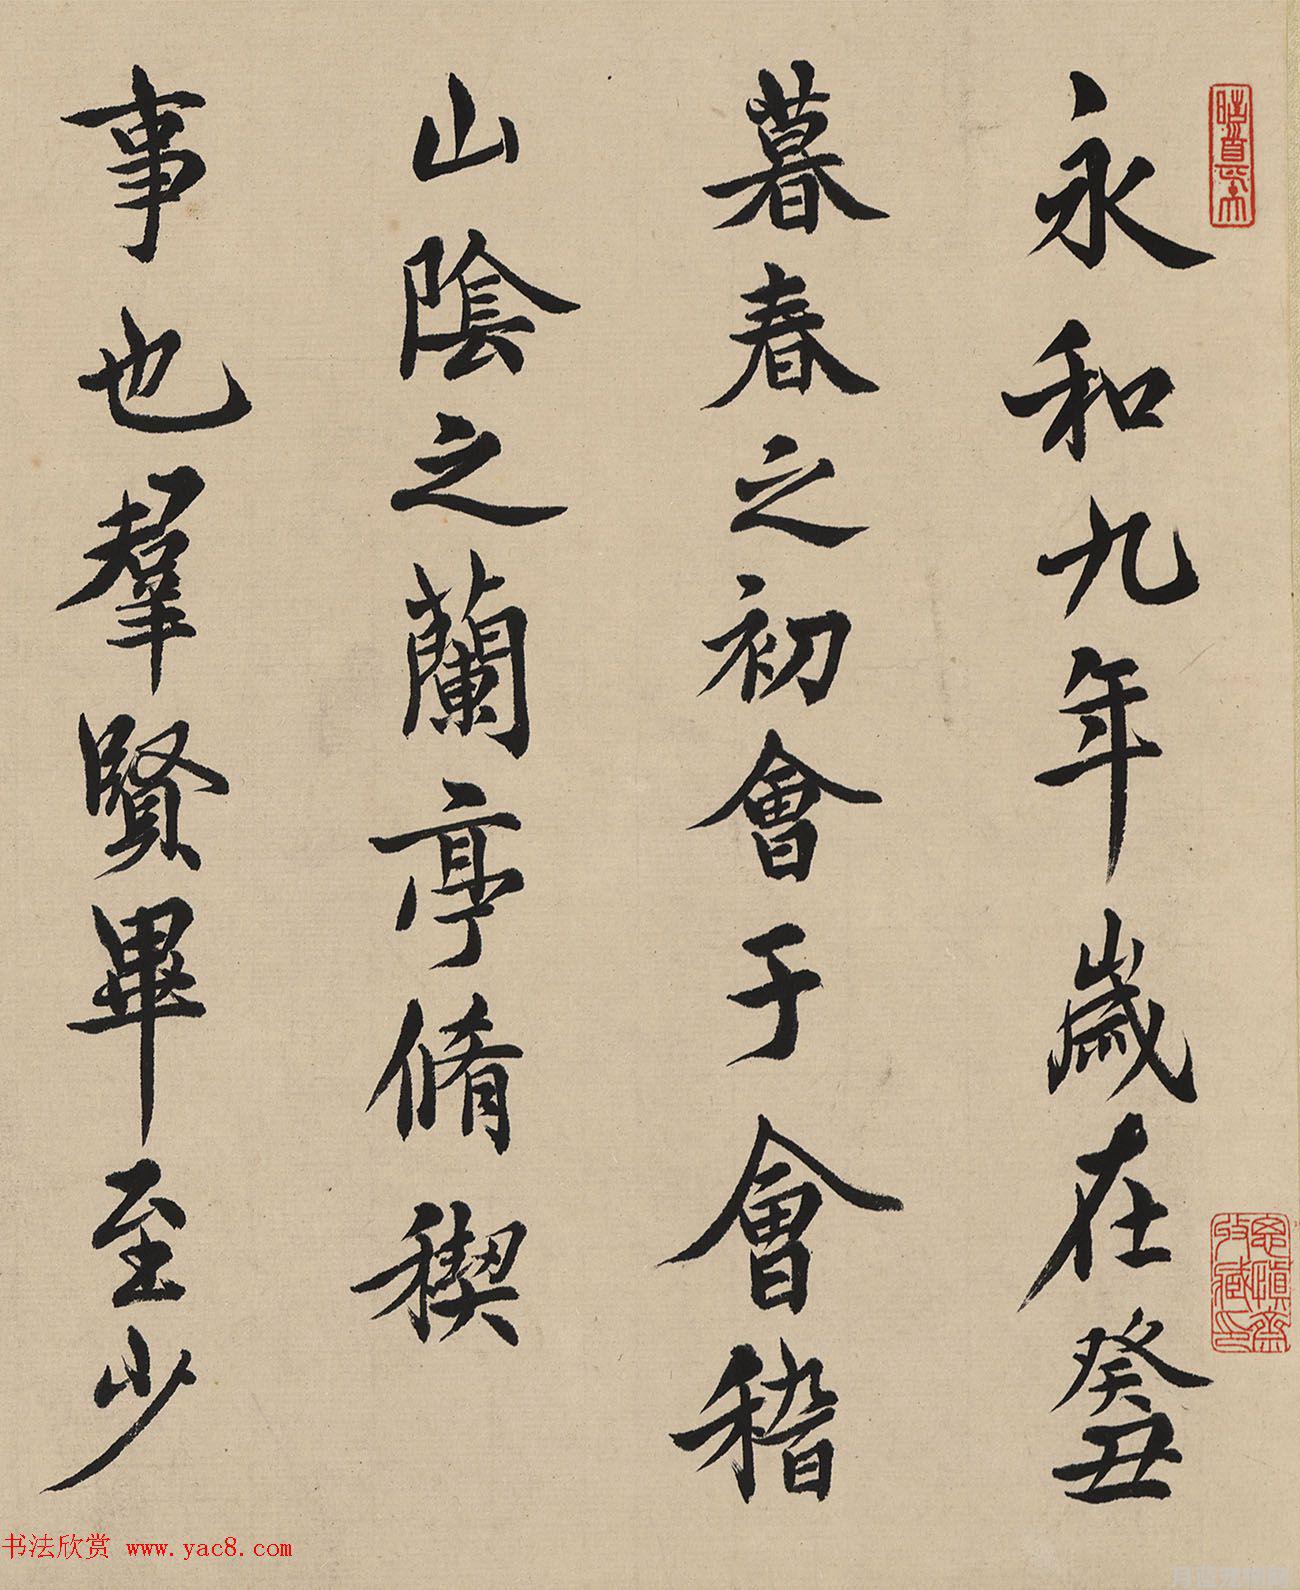 永和九年歲在癸丑
暮春之初會于會稽
山陰之蘭亭脩稧
事也羣賢畢至少
書法欣赏 www.yac8.com